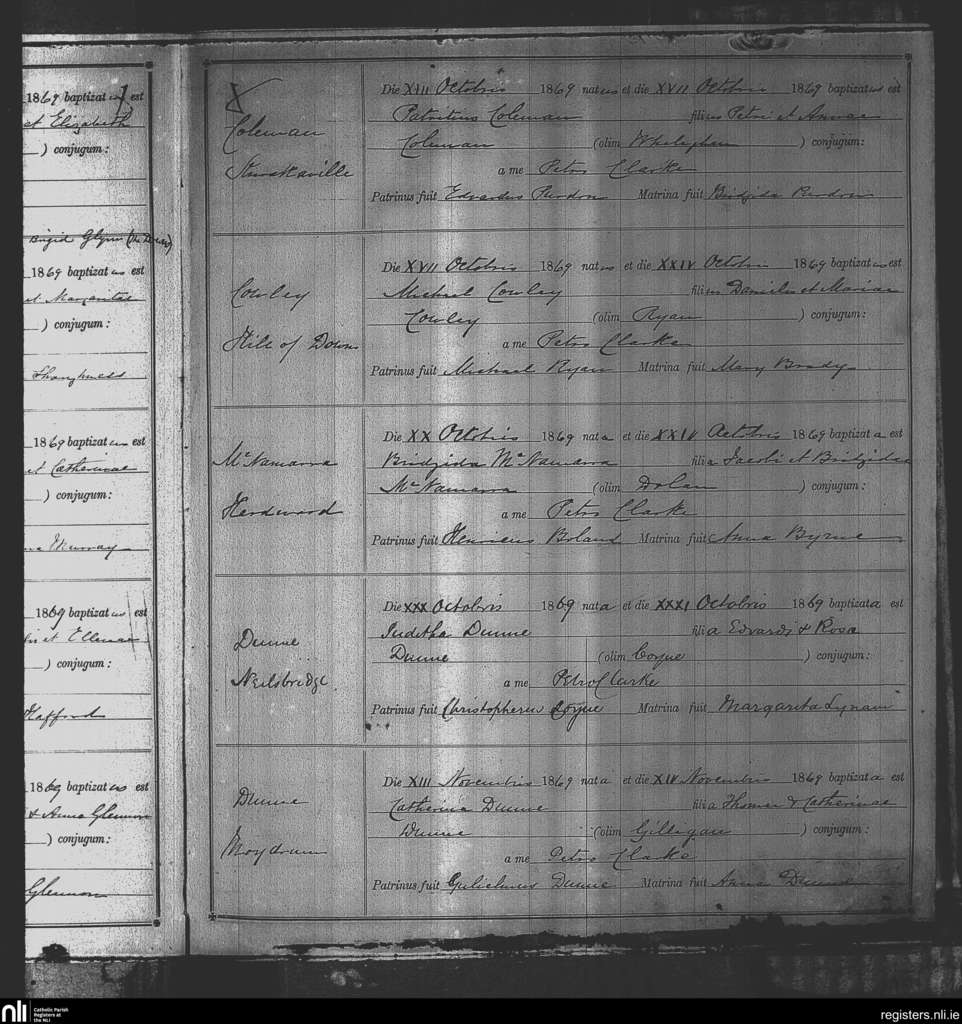 1869 baptizat us est
et Elizabeth
) conjugum:
Brigid Glynn
1869 baptizat us est
et Margaritae
) conjugum:
1869 baptizat us est
et Catherinae
) conjugum:
Murray
1869 baptizat us est
et Ellenae
) conjugum:
Stafford
1869 baptizat us est
& Anna Glennon
) conjugum:
Glennon
X
Coleman
Die XIII Octobris 1869 natus et die XVII Octobris 1869 baptizatus est
Patritius Coleman filius Petri et Annae
Coleman (olim ) conjugum:
a me Petro Clarke
Patrinus fuit Edvardus Reardon Matrina fuit Bridzida Reardon
Cowley
Hill of Down
Die XVII Octobris 1869 natus et die XXIV Octobris 1869 baptizatus est
Michael Cowley filius Danielis et Mariae
Cowley (olim Ryan ) conjugum:
a me Petro Clarke
Patrinus fuit Michael Ryan Matrina fuit Mary Brady
McNamarra
Hardwood
Die XX Octobris 1869 nata et die XXIV Octobris 1869 baptizata est
Bridzida McNamarra filia Jacobi et Bridzidae
McNamarra (olim Dolan ) conjugum:
a me Petro Clarke
Patrinus fuit Henricus Boland Matrina fuit Anna Byrne
Dunne
Neilsbridge
Die XXX Octobris 1869 nata et die XXXI Octobris 1869 baptizata est
Juditha Dunne filia Edvardi & Rosa
Dunne (olim Coyne ) conjugum:
a me Petro Clarke
Patrinus fuit Christopherus Coyne Matrina fuit Margarita Lynam
Dunne
Moydrum
Die XIII Novembris 1869 nata et die XIV Novembris 1869 baptizata est
Catherina Dunne filia Thomae & Catherinae
Dunne (olim Gilligan ) conjugum:
a me Petro Clarke
Patrinus fuit Gulielmus Dunne Matrina fuit Anna Dunne
nli Catholic Parish
Registers at
the NLI
registers.nli.ie